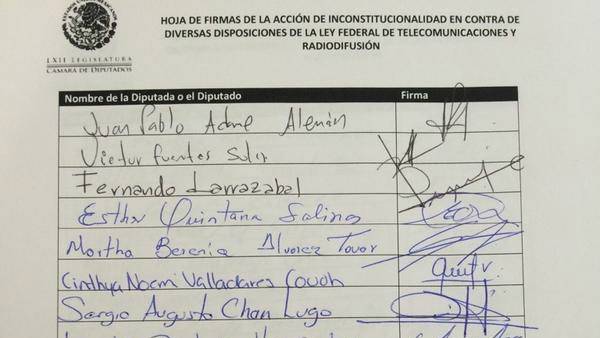 HOJA DE FIRMAS DE LA ACCIÓN DE INCONSTITUCIONALIDAD EN CONTRA DE
DIVERSAS DISPOSICIONES DE LA LEY FEDERAL DE TELECOMUNICACIONES Y
RADIODIFUSIÓN
LXII LEGISLATURA
CÁMARA DE DIPUTADOS
Nombre de la Diputada o el Diputado Firma
Juan Pablo Adame Alemán
Victor Fuentes Solis
Fernando Larrazabal
Esther Quintana Salinas
Martha Berenice Alvarez Tovar
Cinthya Noemi Valladares Couoh
Sergio Augusto Chan Lugo